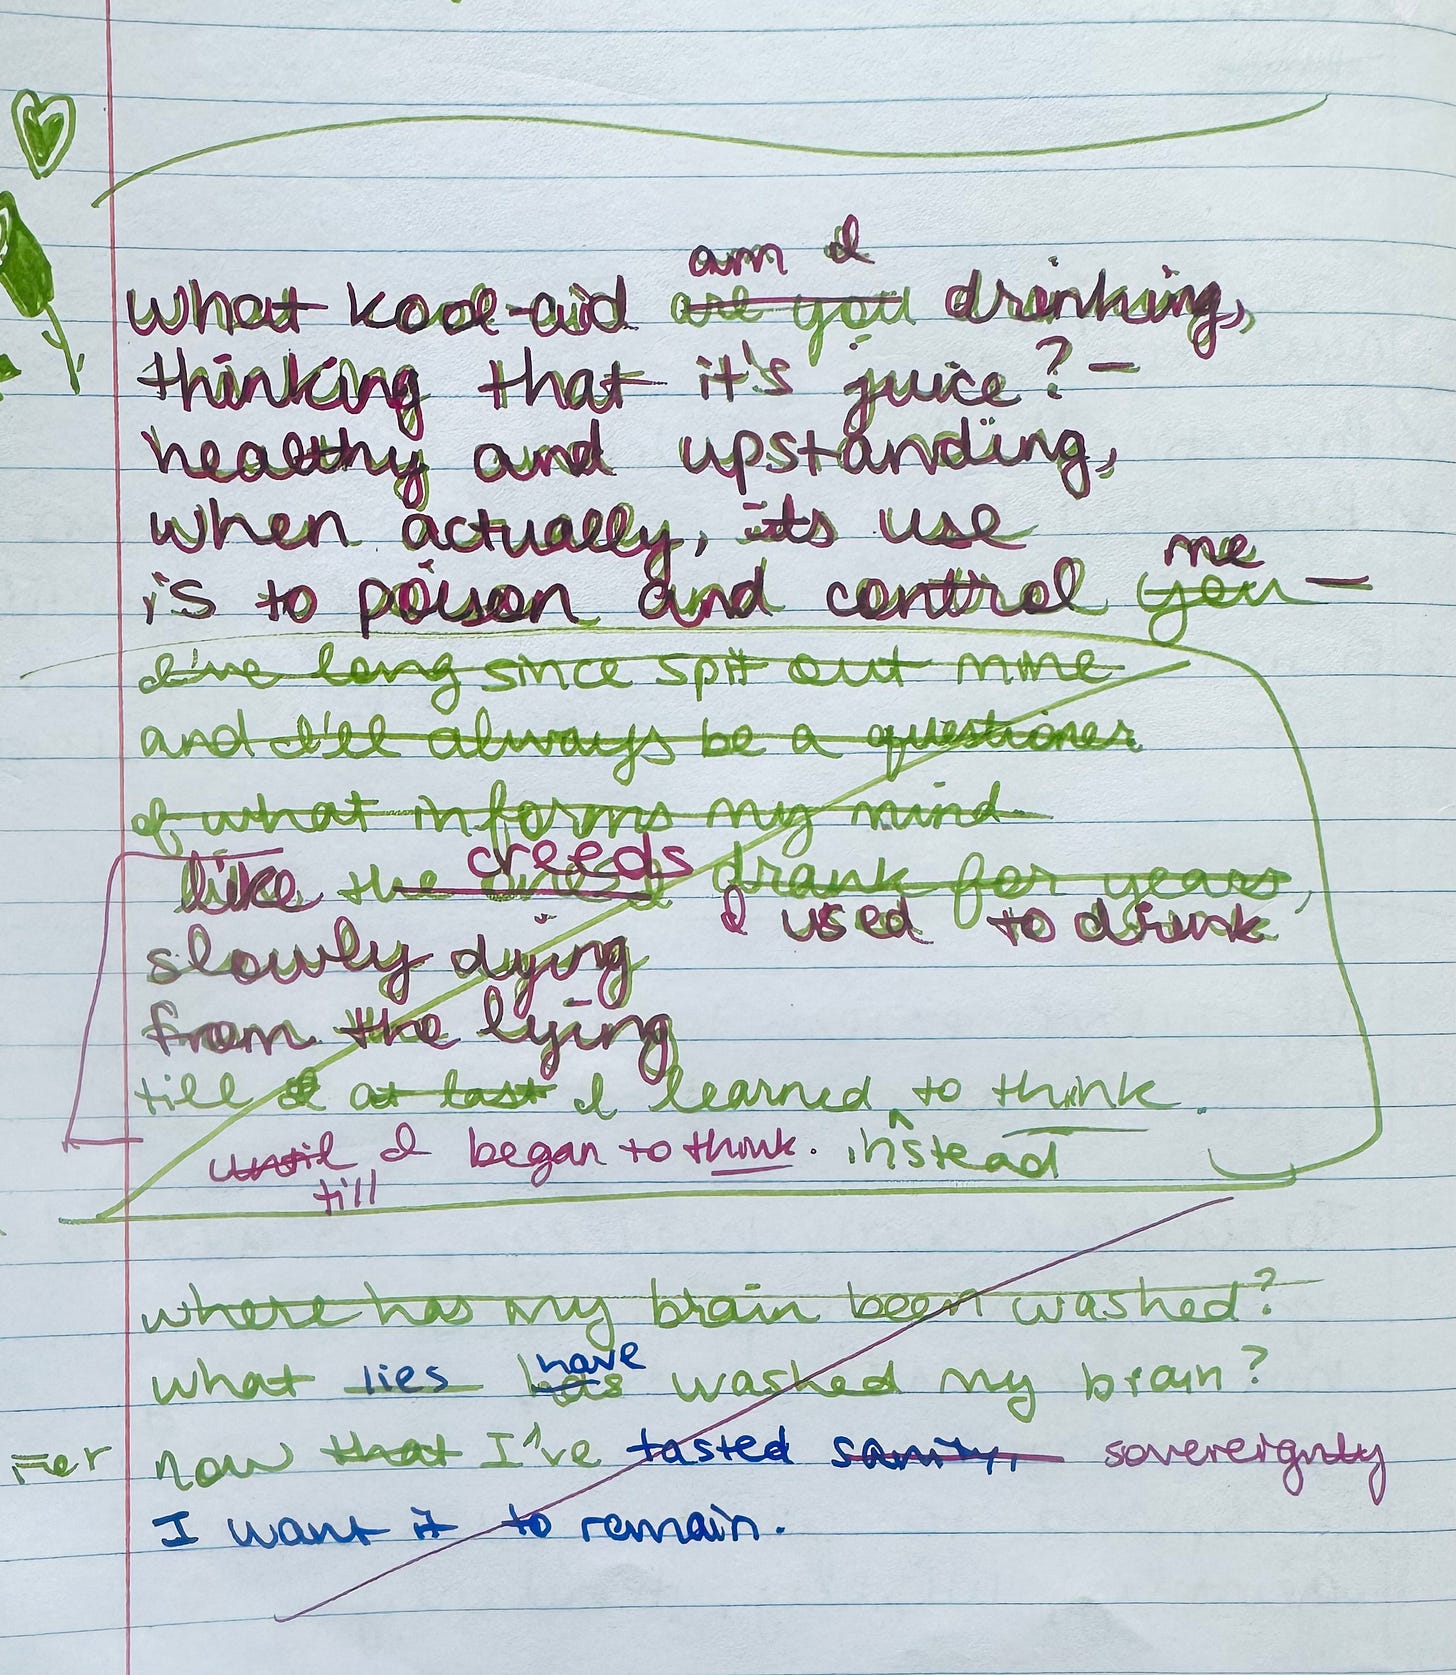 am I
what kool-aid are you drinking,
thinking that it's juice? –
healthy and upstanding,
when actually, its use
me
is to poison and control you –
I've long since spit out mine
and I'll always be a questioner
of what informs my mind
creeds
like the ones I drank for years,
I used to drink
slowly dying
from the lying
till I at last I learned ^ to think.
until I began to think. instead
till
where has my brain been washed?
have
what lies has washed my brain?
For now that I've tasted sanity, sovereignty
I want it to remain.